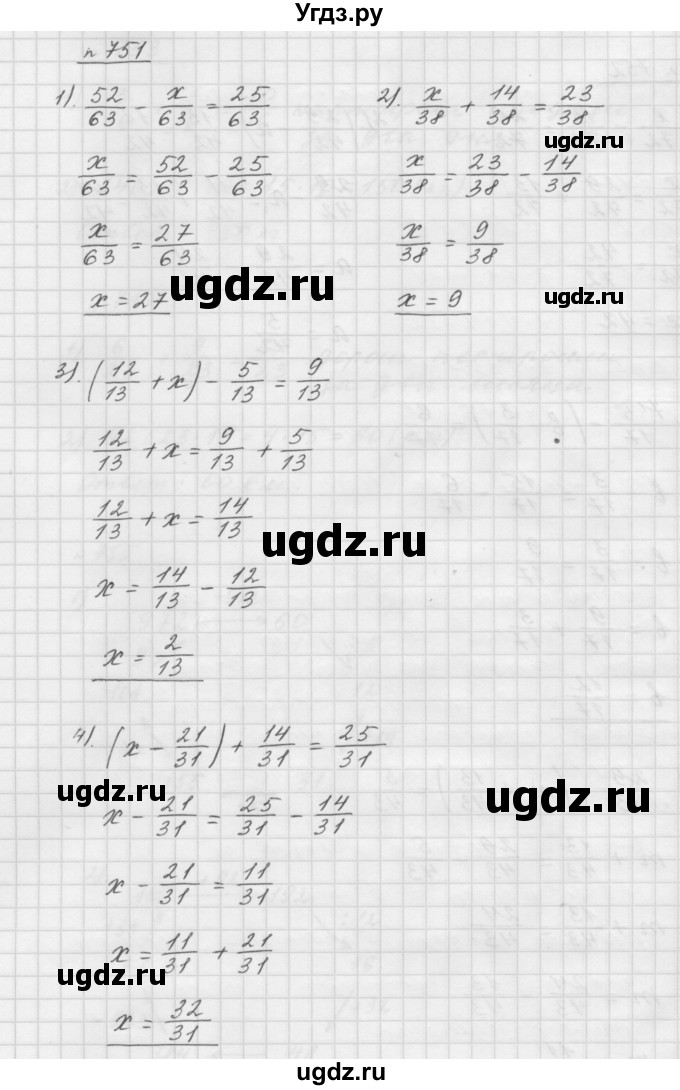 Угдз.ру
n 751
1). 52/63 - x/63 = 25/63
x/63 = 52/63 - 25/63
x/63 = 27/63
x = 27
2). x/38 + 14/38 = 23/38
ugdz.ru
x/38 = 23/38 - 14/38
x/38 = 9/38
x = 9
ugdz.ru
ugdz.ru
3). (12/13 + x) - 5/13 = 9/13
12/13 + x = 9/13 + 5/13
12/13 + x = 14/13
ugdz.ru
x = 14/13 - 12/13
x = 2/13
4). (x - 21/31) + 14/31 = 25/31
ugdz.ru
ugdz.ru
x - 21/31 = 25/31 - 14/31
x - 21/31 = 11/31
x = 11/31 + 21/31
ugdz.ru
x = 32/31
ugdz.ru